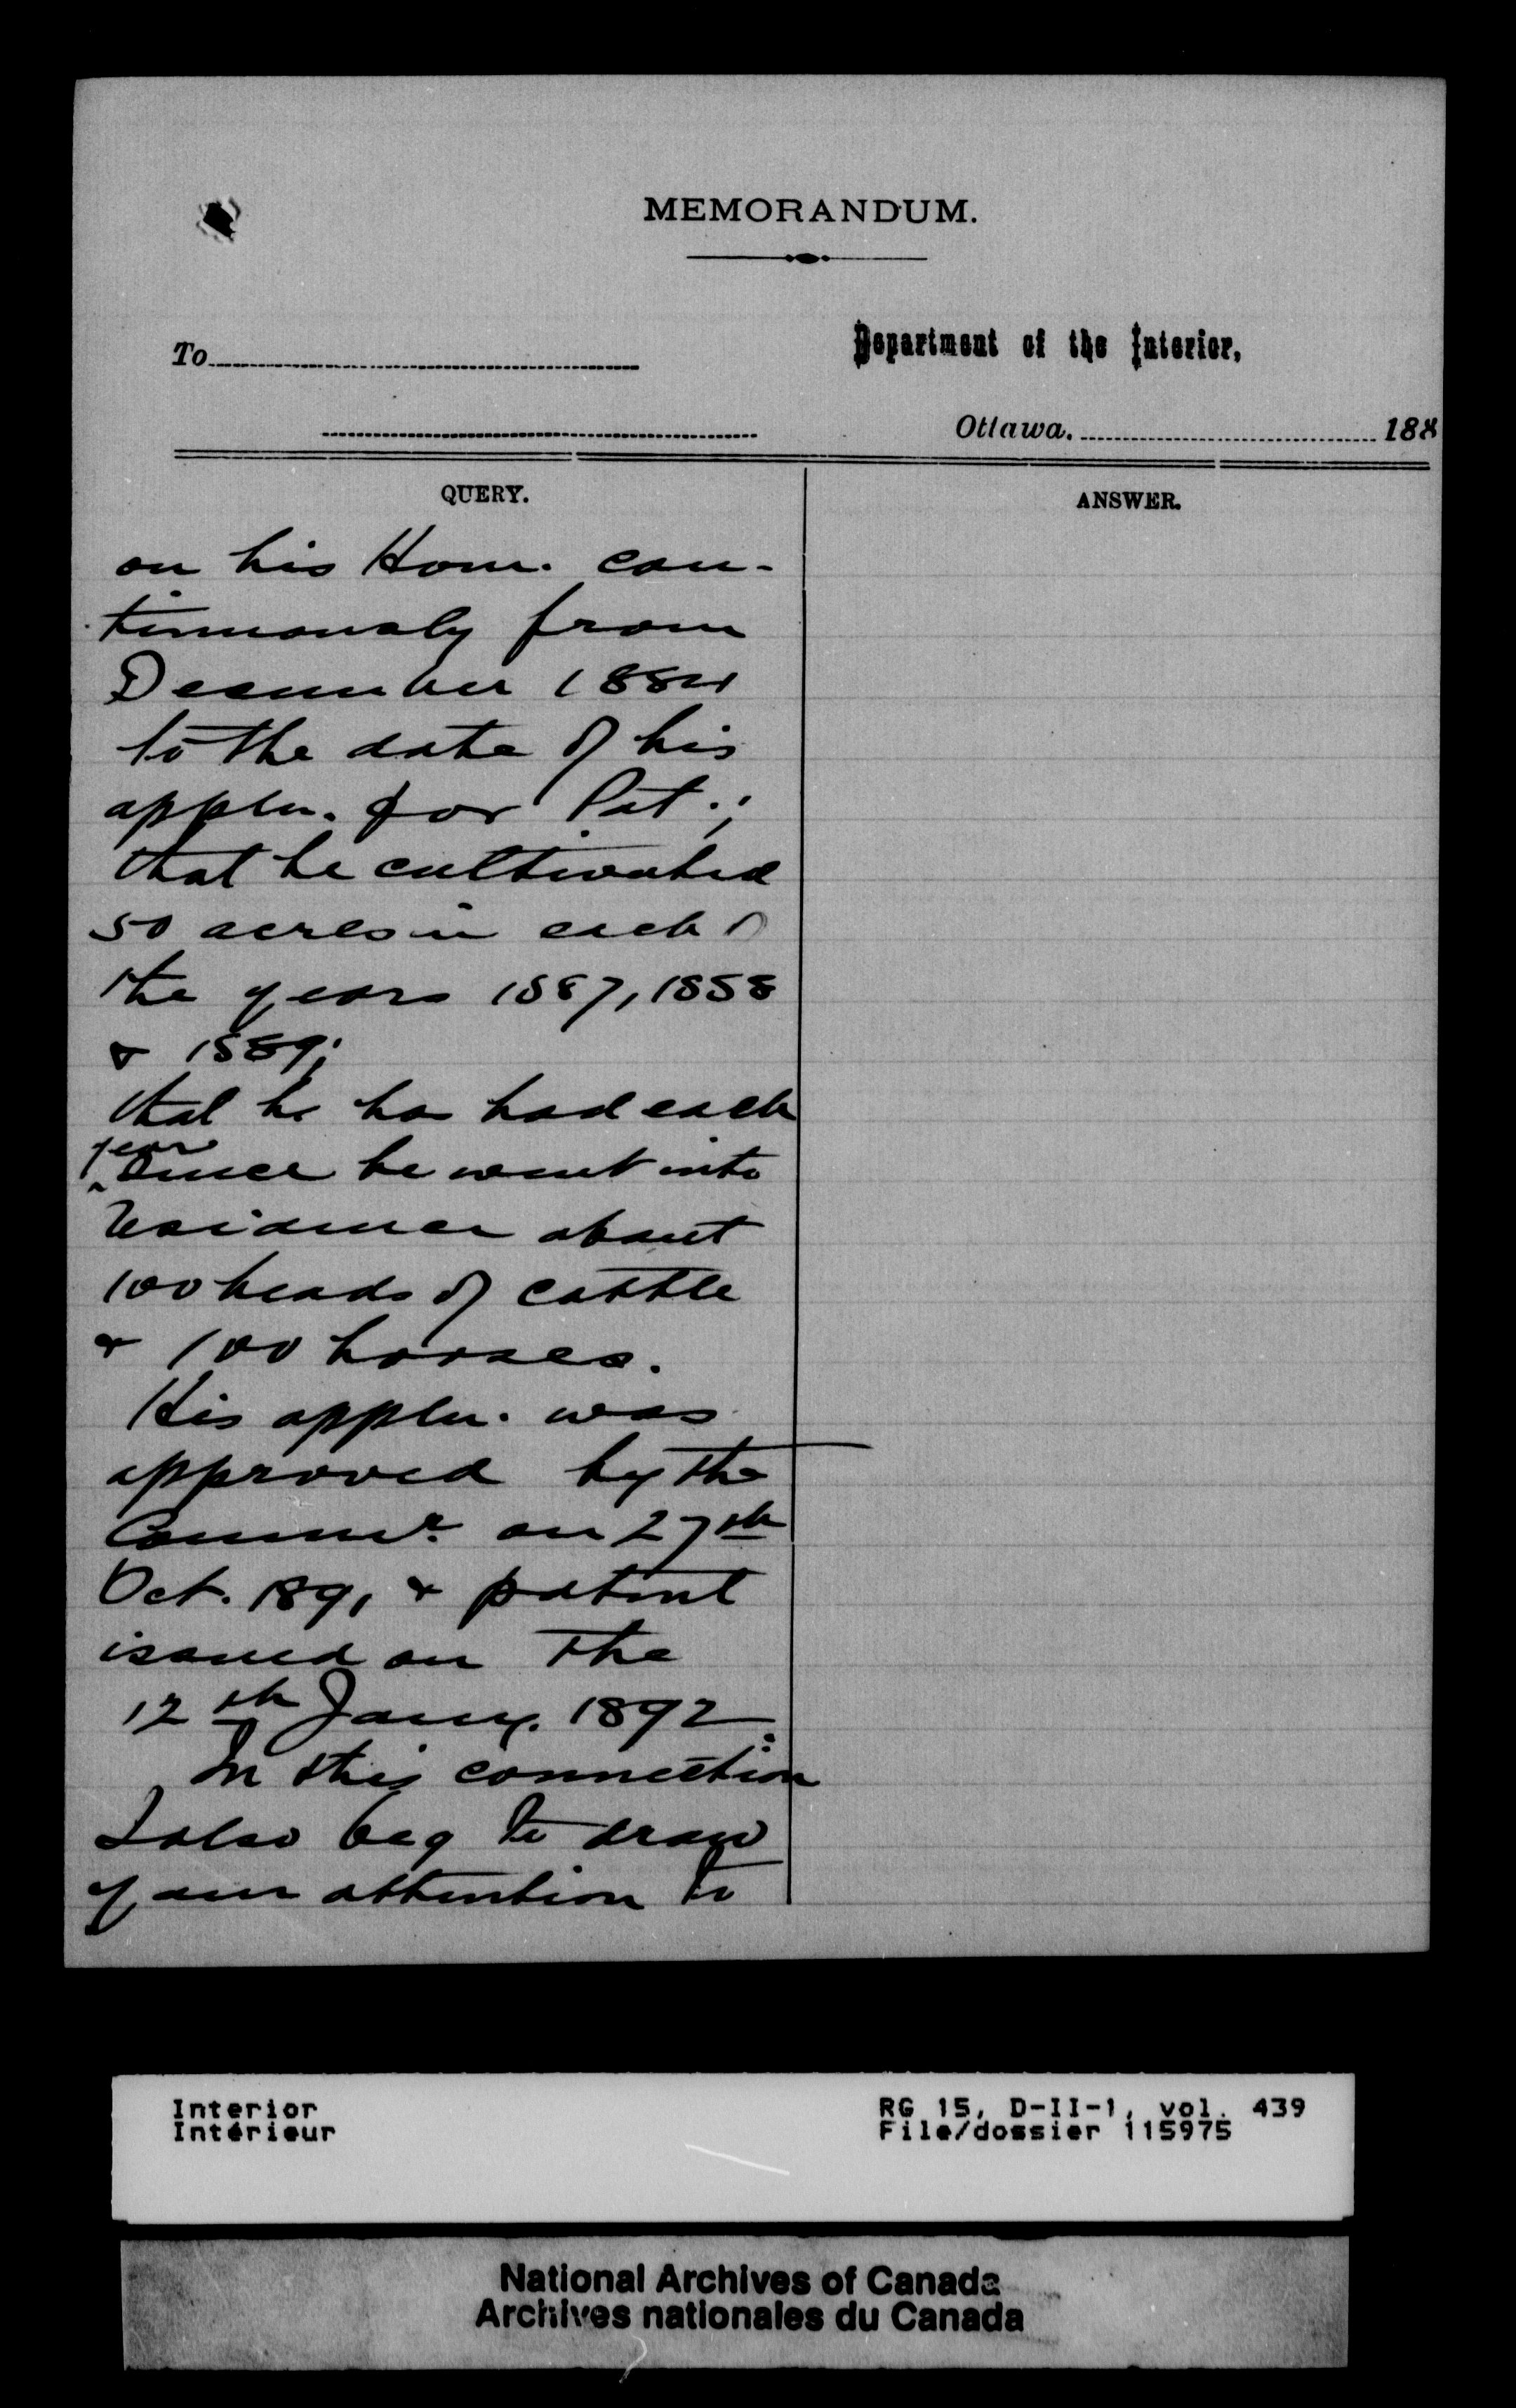 MEMORANDUM.
To
Department of the Interior,
Ottawa. 188
QUERY.
ANSWER.
on his Hom. con-
tinuously from
December 1884
to the date of his
appln. for Pat.;
that he cultivated
50 acres in each of
the years 1887, 1888
& 1889;
that he has had each
year
since he went into
residence about
100 heads of cattle
& 100 horses.
His appln. was
approved by the
Commr. on 27th
Oct. 1891 & patent
issued on the
12th Jany. 1892.
In this connection
I also beg to draw
your attention to
Interior
Intérieur
RG 15, D-II-1, vol. 439
File/dossier 115975
National Archives of Canada
Archives nationales du Canada